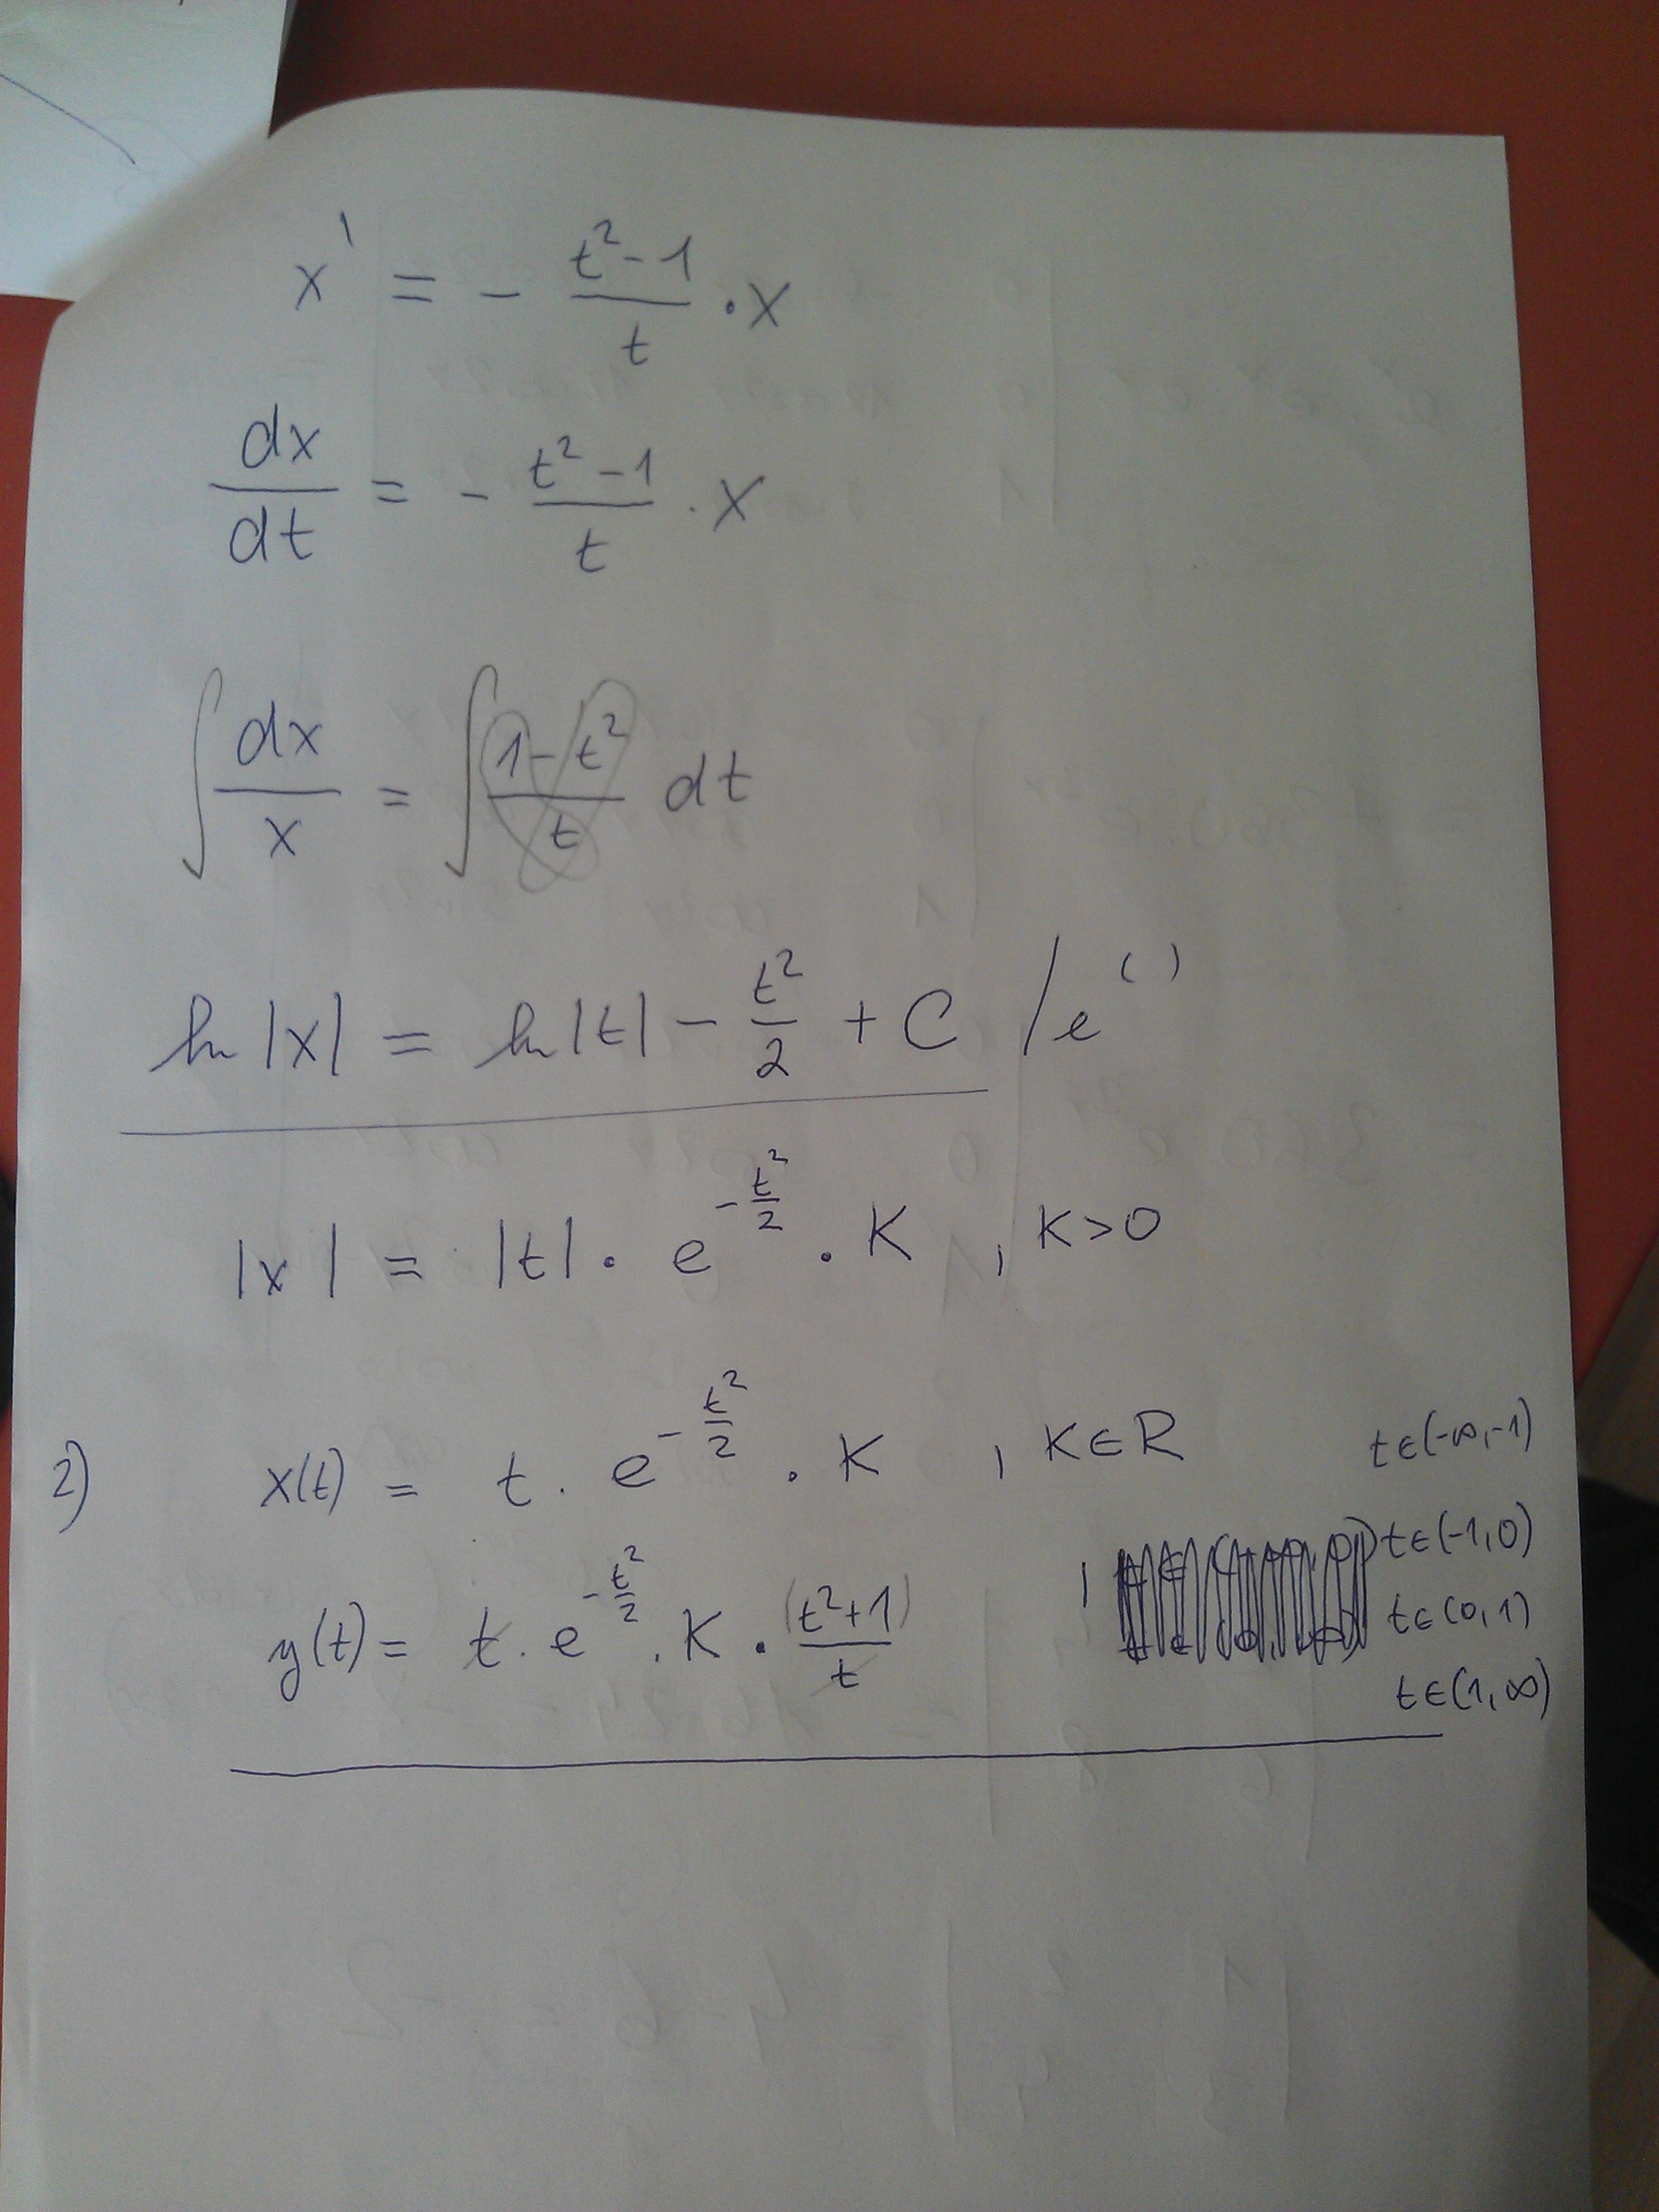 x' = - (t²-1)/t · x
dx/dt = - (t²-1)/t · x
∫ dx/x = ∫ (1-t²)/t dt
ln |x| = ln |t| - t²/2 + C / e^( )
|x| = |t| · e^(-t²/2) · K , K>0
2) x(t) = t · e^(-t²/2) · K , K∈R t∈(-∞,-1)
t∈(-1,0)
y(t) = t · e^(-t²/2) · K · (t²+1)/t , t∈(0,1)
t∈(1,∞)